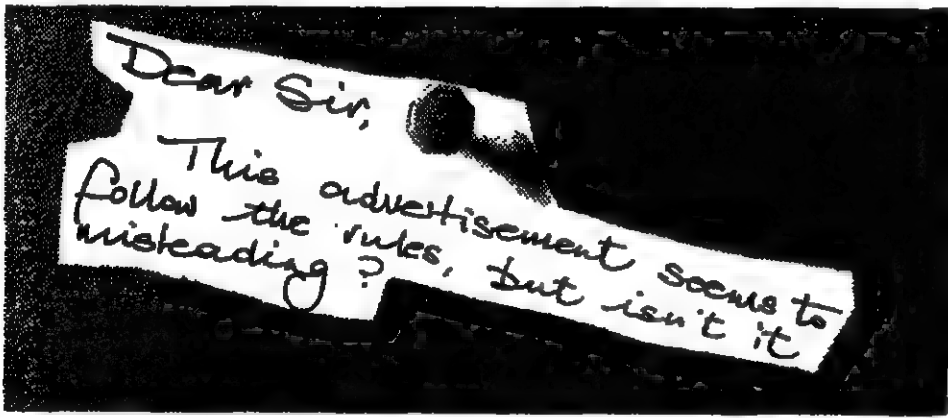 Dear Sir,
This advertisement seems to
follow the rules, but isn't it
misleading?